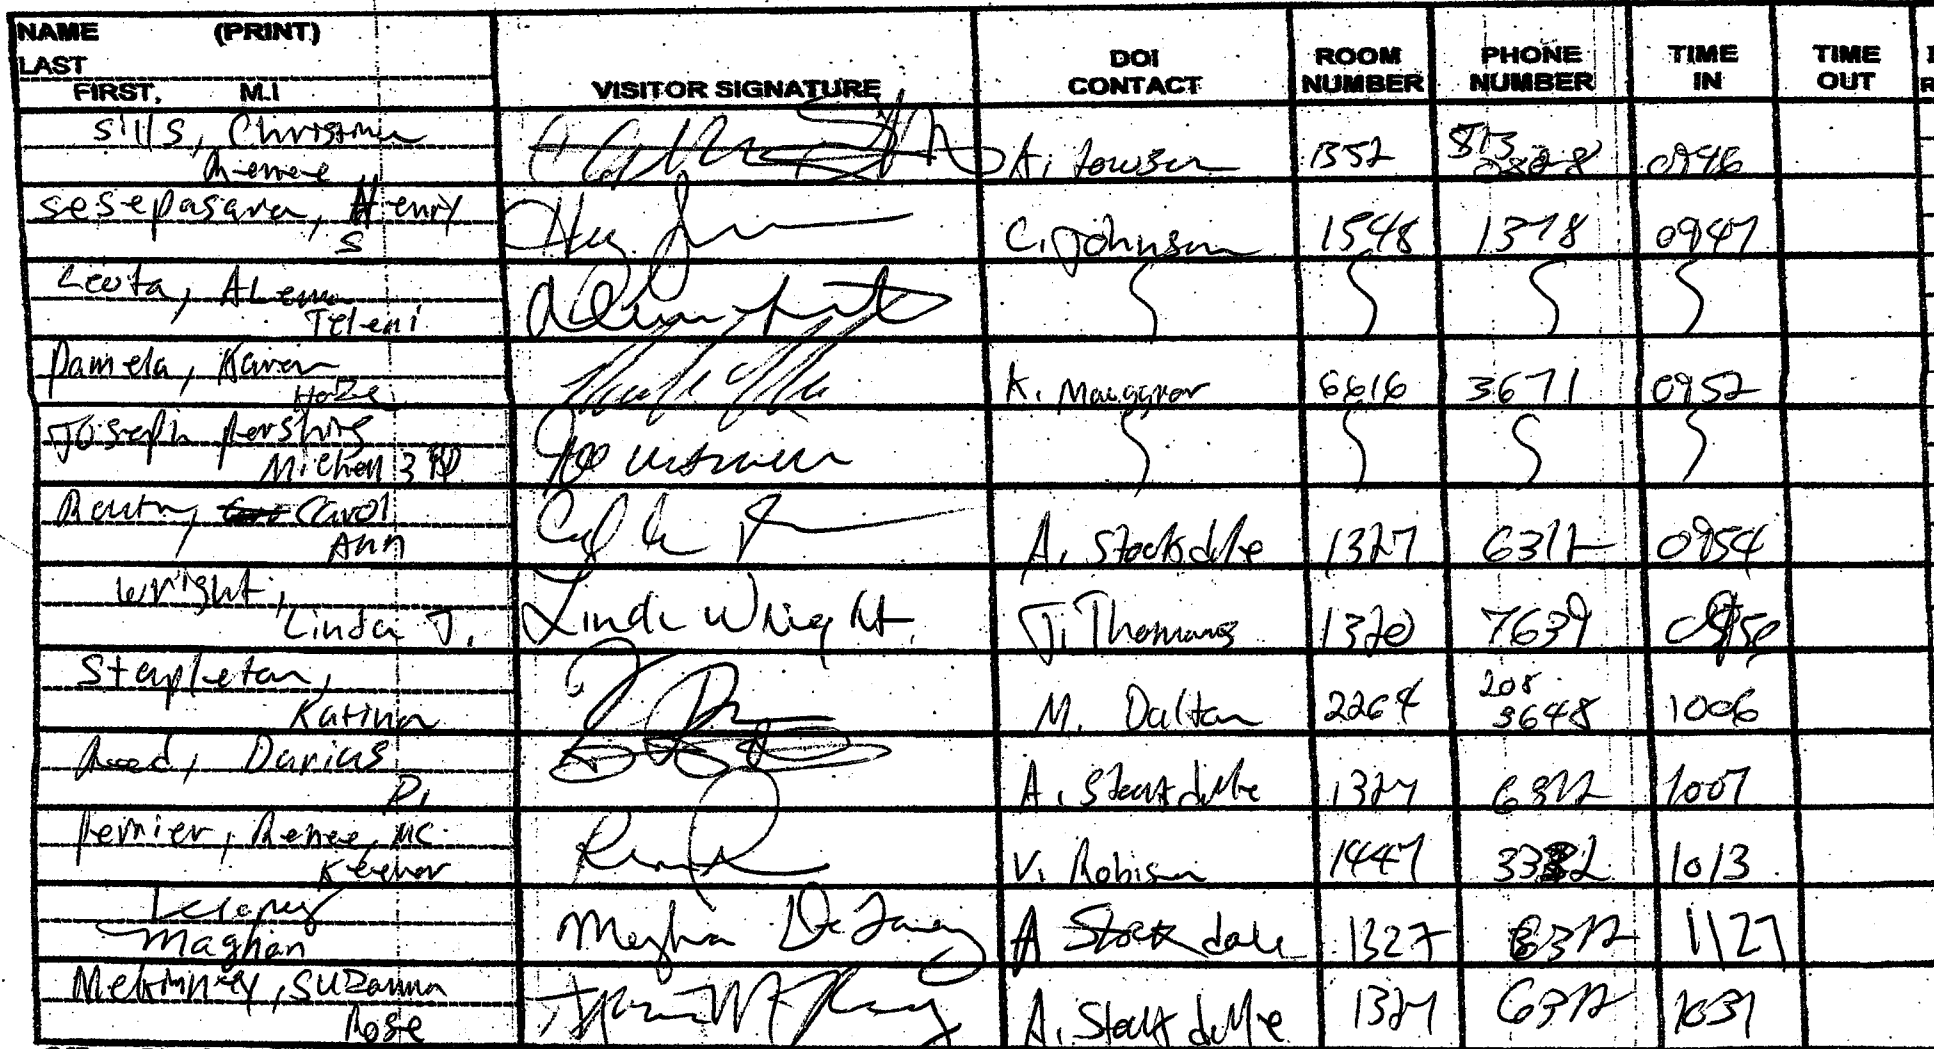 NAME (PRINT)
LAST
FIRST, M.I
VISITOR SIGNATURE
DOI
CONTACT
ROOM
NUMBER
PHONE
NUMBER
TIME
IN
TIME
OUT
Sills, Christina
Renee
A. Towson 1352 513 0828 0946
Sesepasara, Henry
S
C. Johnson 1548 1378 0947
Leota, Alema
Teleni
Pamela, Karen
K. Mauggror 6616 3671 0952
Joseph Pershing
Michon 3RD
Carol
Ann
A. Stockdale 1327 6312 0954
Wright,
Linda J.
Linda Wright
J. Thomas 1320 7639
Stapleton,
Katrina
M. Dalton 2264 208 3648 1006
Reed, Darius
D.
A. Stockdale 1327 6312 1007
Pernier, Renee, Mc
Keehor
V. Robison 1447 3332 1013
Maghan
Meghan DeLaney
A Stockdale 1327 6312 1127
McKinney, Suzanna
Rose
A. Stockdale 1327 6312 1031